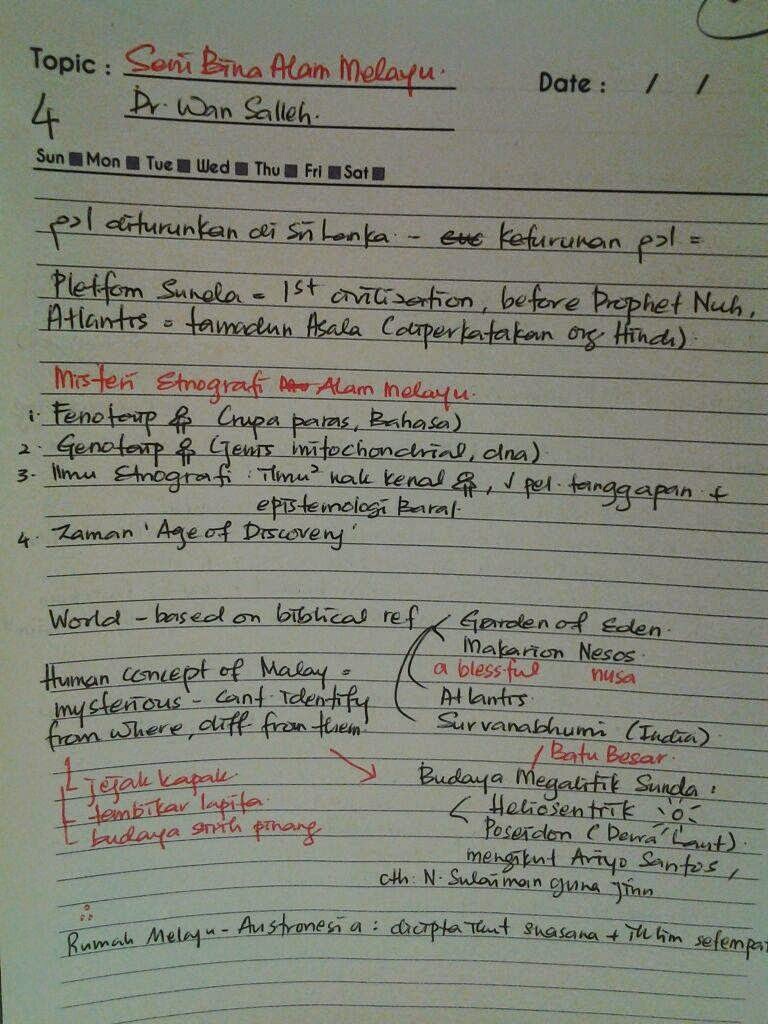 Topic : Seni Bina Alam Melayu.
Date : / /
4 Dr. Wan Salleh.
Sun Mon Tue Wed Thu Fri Sat
diturunkan di Sri Lanka - keturunan =
Pletfom Sunda = 1st civilization, before Prophet Nuh,
Atlantis = tamadun Asala (diperkatakan org Hindi).
Misteri Etnografi Alam Melayu.
1. Fenotaip (rupa paras, Bahasa)
2. Genotaip (jenis mitochondrial, dna)
3. Ilmu Etnografi : ilmu² nak kenal , ↓ pel. tanggapan +
epistemologi Barat.
4. Zaman 'Age of Discovery'
World - based on biblical ref < Garden of Eden.
Makarion Nesos.
a blessful nusa
Atlantis.
Survanabhumi (India)
Human concept of Malay =
mysterious - cant identify
from where, diff from them
jejak kapak.
tembikar lapita.
budaya sirih pinang
Batu Besar.
Budaya Megalitik Sunda :
< Heliosentrik
Poseidon (Dewa Laut).
mengikut Ariyo Santos,
cth: N. Sulaiman guna jinn
∴
Rumah Melayu - Austronesia : dicipta ikut suasana + iklim setempat